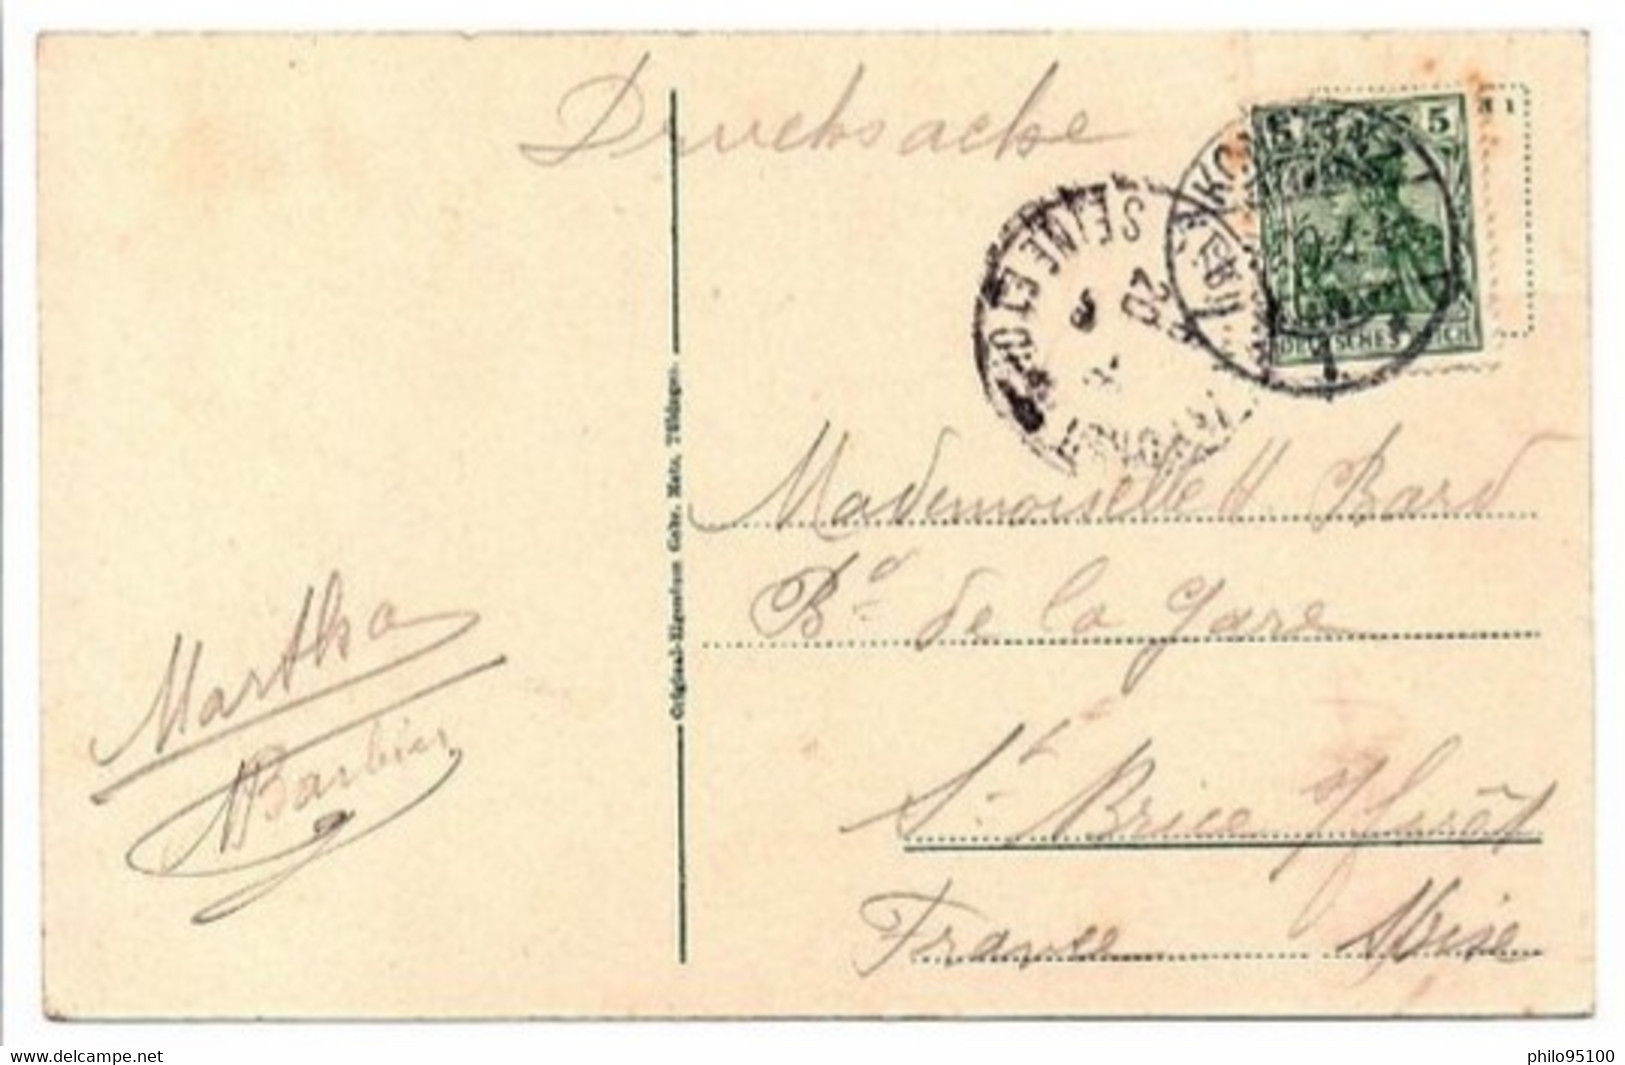 Drucksache
5 5
DEUTSCHES REICH
SEINE ET OISE
20
Original-Eigentum Gebr. Metz, Tübingen.
Mademoiselle H Bard
Bd de la Gare
St Brice s/ forêt
France
Martha
Barbier
www.delcampe.net
philo95100